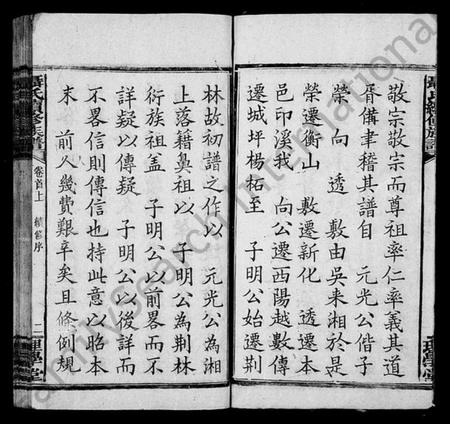 敬宗敬宗而尊祖率仁率義其道
胥備聿稽其譜自 元光公偕子
榮 向 透 敷由吳来湘於是
榮遷衡山 敷遷新化 透遷本
邑印溪我 向公遷西陽越數傳
遷城坪楊柘至 子明公始遷荆
林故初譜之作以 元光公為湘
上落籍鼻祖以 子明公為荆林
衍族祖盖 子明公以前畧而不
詳疑以傳疑 子明公以後詳而
不畧信則傳信也持此意以昭本
末 前人幾費艱辛矣且條例規
氏續修族譜
卷首上
續舊序
二
理學堂
familysearch international